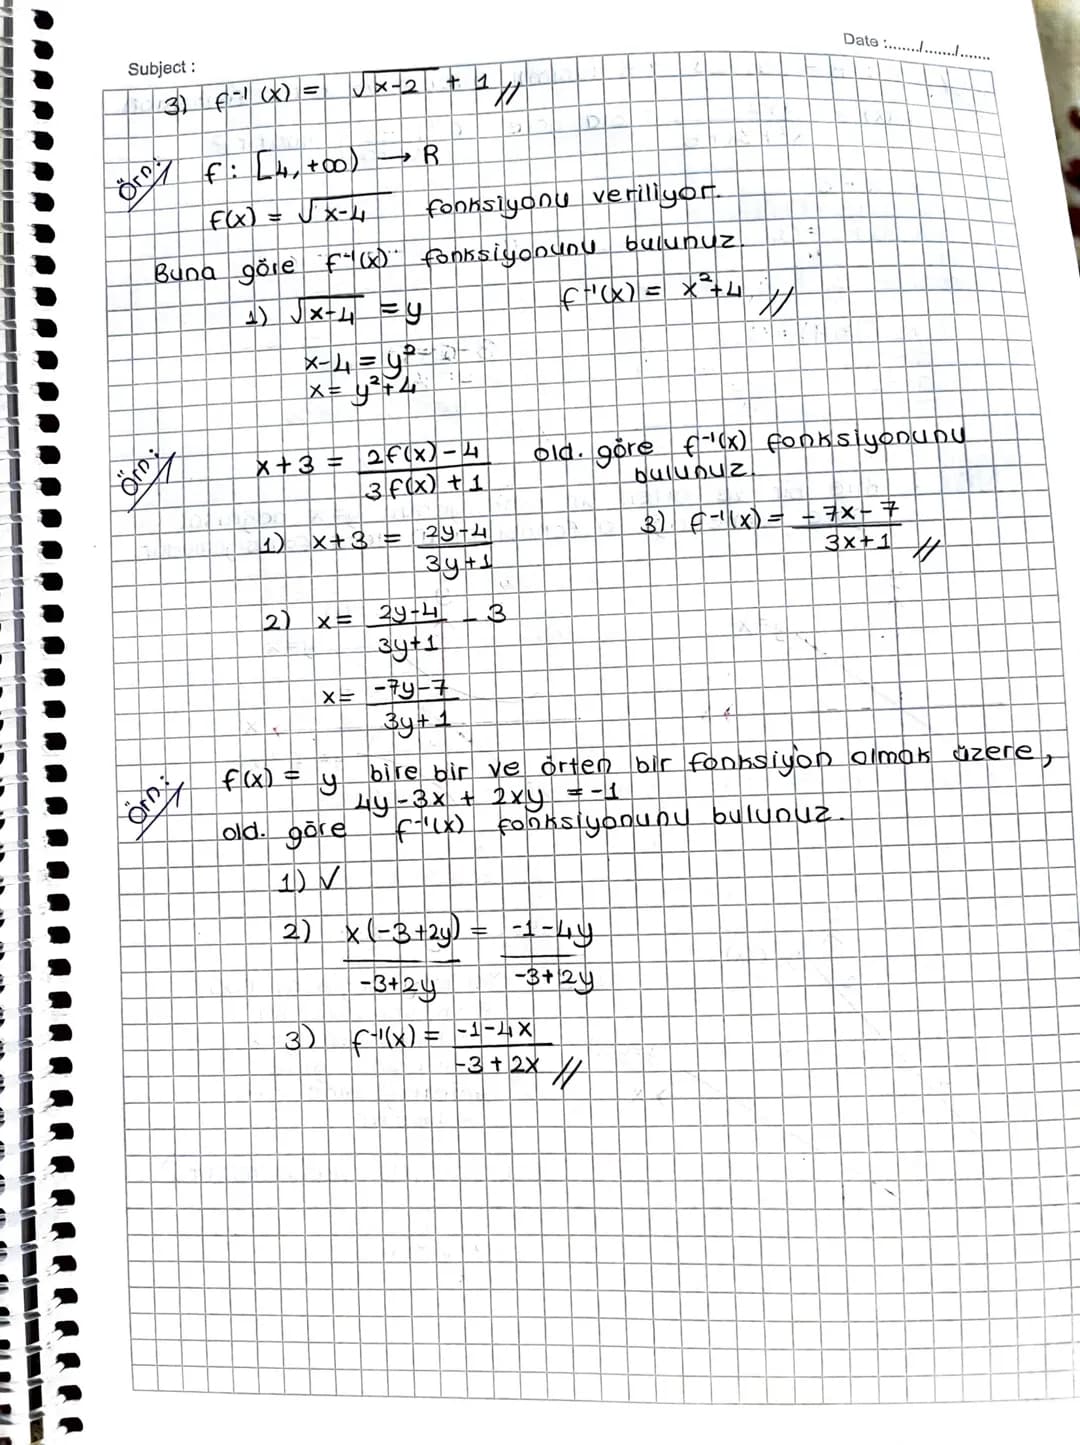 Date :......../......./.......
Subject :
3) f⁻¹(x) = √(x-2) + 1 //
Örn: f: [4,+∞) → R
f(x) = √(x-4) fonksiyonu veriliyor.
Buna göre f⁻¹(x) fonksiyonunu bulunuz.
1) √(x-4) = y
f⁻¹(x) = x²+4 //
x-4 = y²
x = y²+4
Örn: x+3 = (2f(x)-4)/(3f(x)+1) old. göre f⁻¹(x) fonksiyonunu
bulunuz.
1) x+3 = (2y-4)/(3y+1)
3) f⁻¹(x) = (-7x-7)/(3x+1) //
2) x = (2y-4)/(3y+1) - 3
x = (-7y-7)/(3y+1)
Örn: f(x) = y bire bir ve örten bir fonksiyon olmak üzere,
4y-3x + 2xy = -1
old. göre f⁻¹(x) fonksiyonunu bulunuz.
1) √
2) x(-3+2y)/(-3+2y) = (-1-4y)/(-3+2y)
3) f⁻¹(x) = (-1-4x)/(-3+2x) //